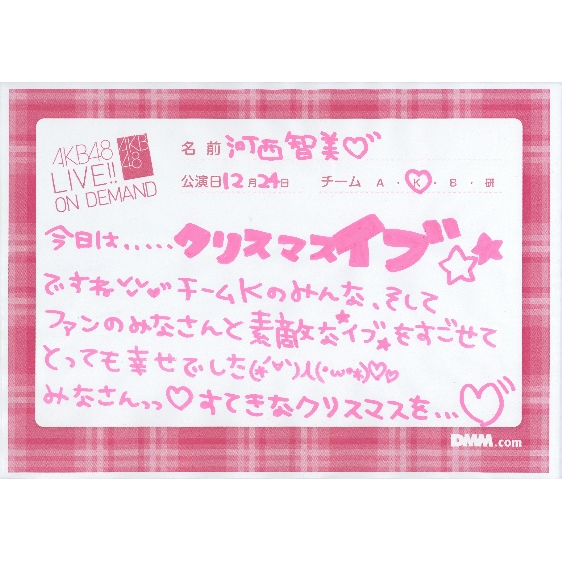 AKB48
LIVE!!
ON DEMAND
AKB
48
名前 河西智美♡
公演日12月24日 チーム A・K・B・研
今日は.....クリスマスイブ☆★
ですね チームKのみんな、そして
ファンのみなさんと素敵なイブをすごせて
とっても幸せでした(*'∀')人('ω'*)♡♡
みなさんっっ♡すてきなクリスマスを...♡
DMM.com